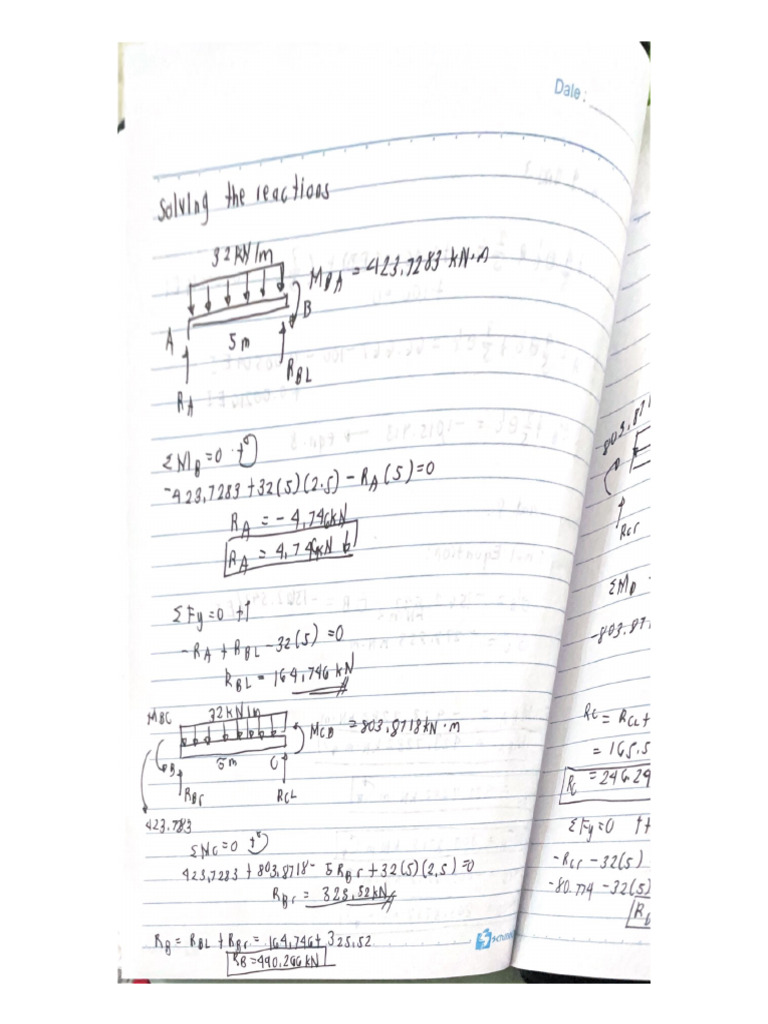 Date:
Solving the reactions
32 kN/m
M_BA = 423,7283 kN·m
B
A
5m
R_BL
R_A
ΣM_B=0 ↻+
-423,7283 + 32(5)(2.5) - R_A(5)=0
R_A = -4,746kN
R_A = 4,746kN ↓
ΣFy=0 +↑
-R_A + R_BL - 32(5) =0
R_BL = 164,746 kN
M_BC
32kN/m
M_CB = 803,8718kN·m
B
5m
C
R_Br
R_CL
423.783
ΣM_C=0 ↻+
423,7283 + 803,8718 - 5R_Br + 32(5)(2,5) =0
R_Br = 325,52kN
R_B = R_BL + R_Br = 164,746 + 325,52
R_B = 490,266 kN
803,871
R_Cr
ΣM_D
-803.87
R_C = R_CL +
= 165.5
R_C = 246.29
ΣFy=0 ↑+
-R_Cr - 32(5)
-80.774 - 32(5)